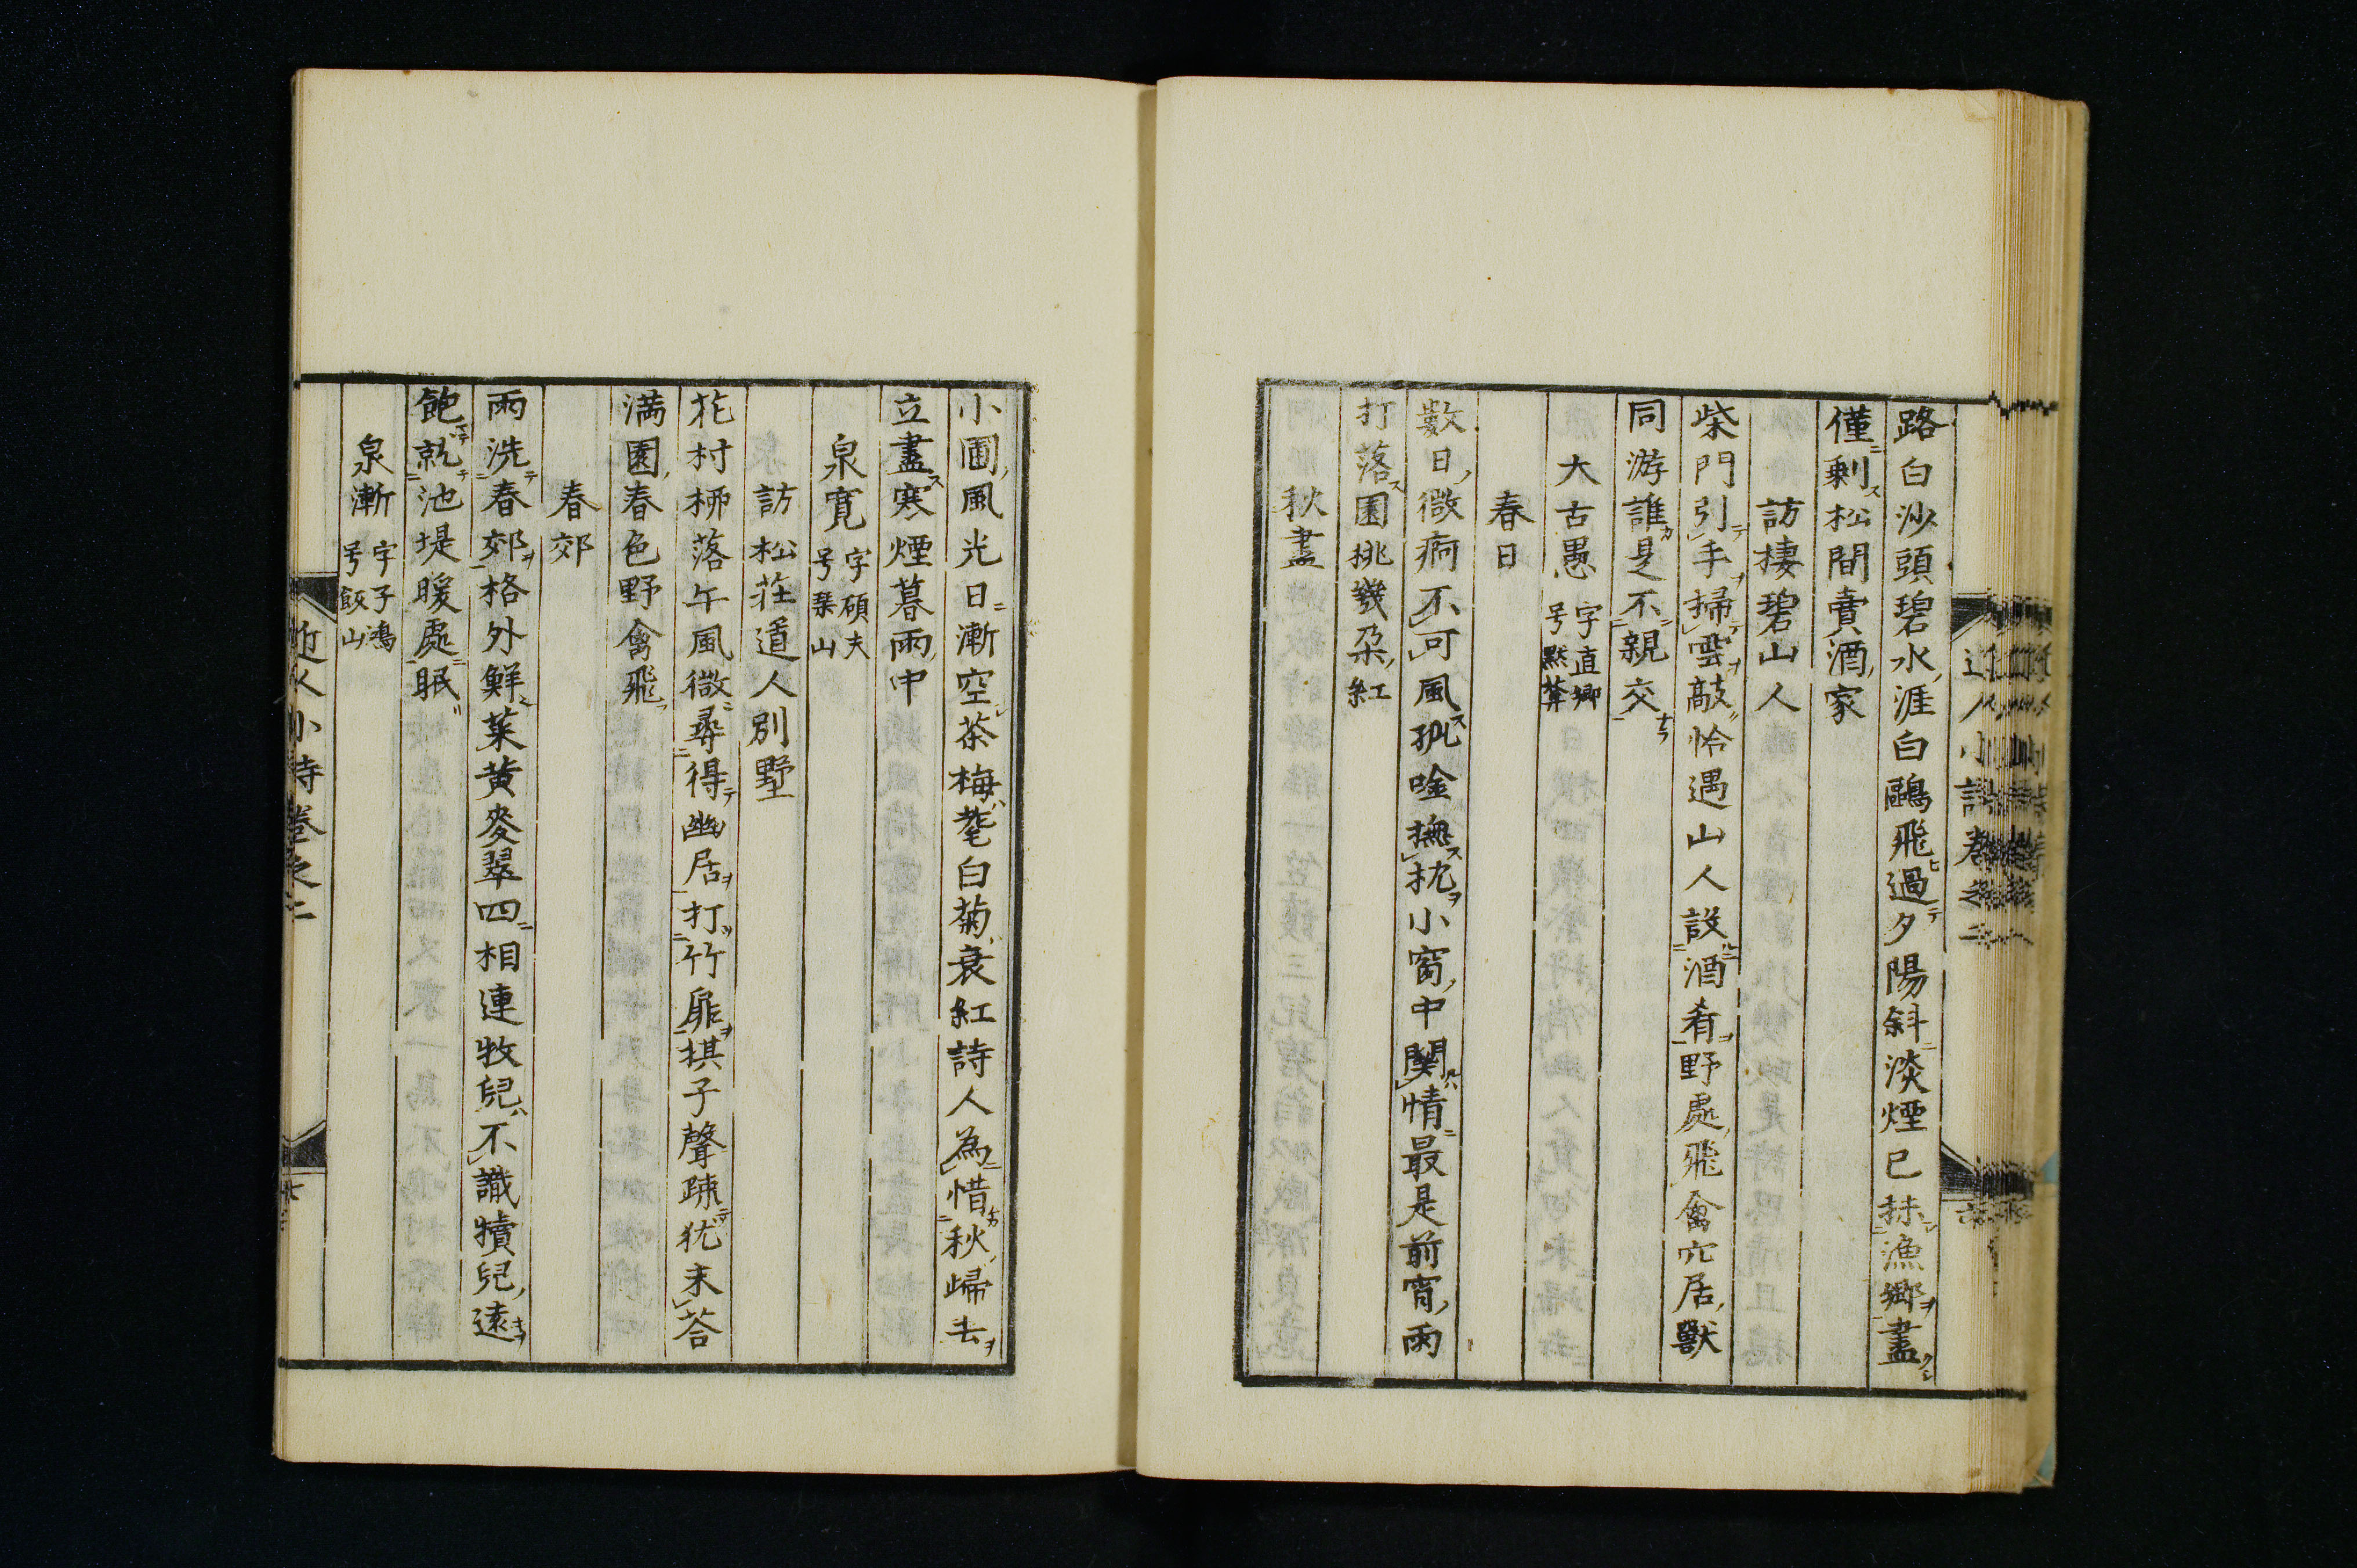 路白沙頭碧水涯白鷗飛過夕陽斜淡煙已抹漁郷盡
僅剩松間賣酒家
訪棲碧山人
柴門引手掃雲敲恰遇山人設酒肴野處飛禽穴居獸
同游誰是不親交
大古愚 字直卿 号黙葊
春日
數日微痾不可風孤唫撫枕小窗中関情最是前宵雨
打落園桃幾朶紅
秋盡
小圃風光日漸空茶梅蓽白菊衰紅詩人為惜秋帰去
立盡寒煙暮雨中
泉寛 字碩夫 号琹山
訪松荘道人別墅
花村栁落午風微尋得幽居打竹扉棋子聲疎犹未荅
満園春色野禽飛
春郊
雨洗春郊格外鮮菜黄麥翠四相連牧兒不識犢兒遠
飽就池堤暖處眠
泉漸 字子鴻 号飯山
近人小詩巻之二
七